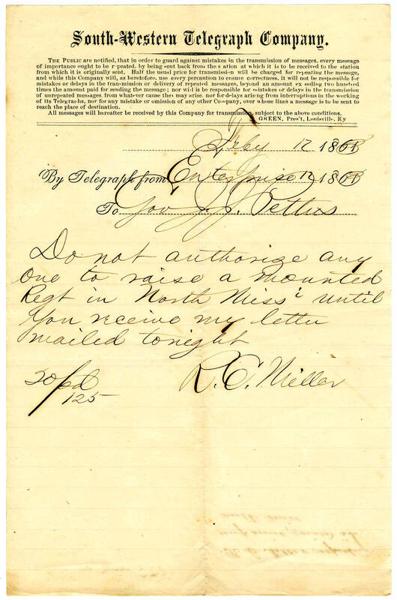 South-Western Telegraph Company.
The Public are notified, that in order to guard against mistakes in the transmission of messages, every message
of importance ought to be repeated, by being sent back from the station at which it is to be received to the station
from which it is originally sent. Half the usual price for transmission will be charged for repeating the message,
and while this Company will, as heretofore, use every precaution to ensure correctness, it will not be responsible for
mistakes or delays in the transmission or delivery of repeated messages, beyond an amount exceeding two hundred
times the amount paid for sending the message; nor will it be responsible for mistakes or delays in the transmission
of unrepeated messages from whatever cause they may arise, nor for delays arising from interruptions in the working
of its Telegraphs, nor for any mistake or omission of any other Company, over whose lines a message is to be sent to
reach the place of destination.
All messages will hereafter be received by this Company for transmission, subject to the above conditions.
GREEN, Pres't, Louisville, Ky
12 186
By Telegraph from Enterprise 12 186
To Gov J. J. Pettus
Do not authorize any
one to raise a mounted
Regt in North Miss until
you receive my letter
mailed tonight
R. C. Miller
30/pd
125